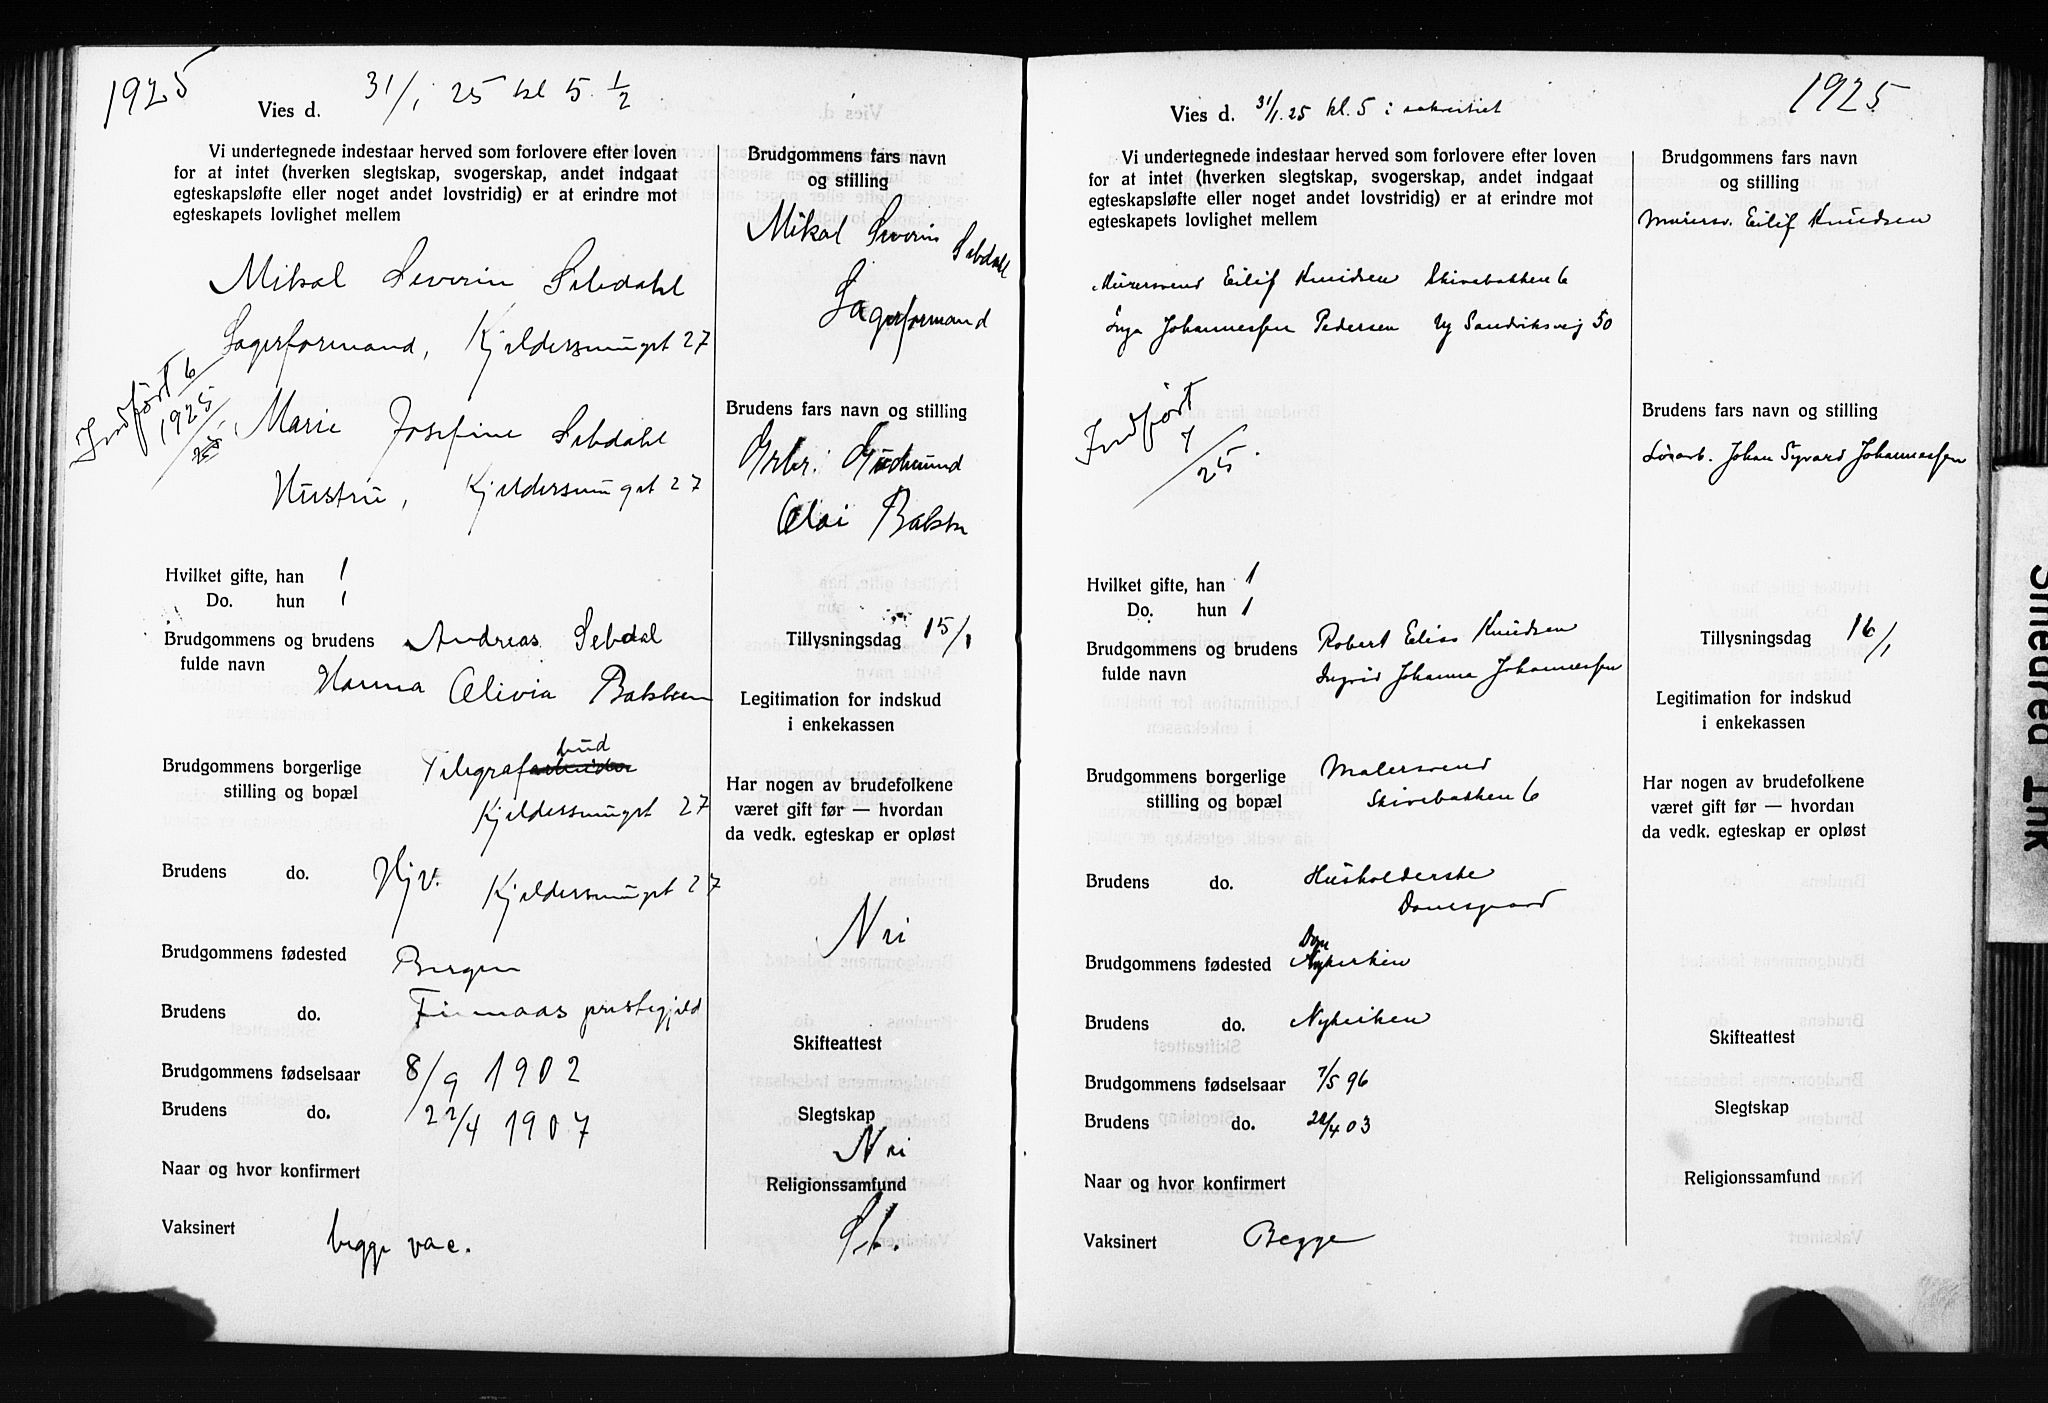 1925
Vies d. 31/1 25 kl 5 1/2
Vi undertegnede indestaar herved som forlovere efter loven
for at intet (hverken slegtskap, svogerskap, andet indgaat
egteskapsløfte eller noget andet lovstridig) er at erindre mot
egteskapets lovlighet mellem
Mikal Severin Sebdahl
Lagerformand, Kjeldersmuget 27
Indført 6
1925
Marie Josefine Sebdahl
Hustru, Kjeldersmuget 27
Hvilket gifte, han 1
Do. hun 1
Brudgommens og brudens Andreas Sebdal
fulde navn Hanna Olivia Bakken
bud
Brudgommens borgerlige Telegrafarbeider
stilling og bopæl Kjeldersmuget 27
Brudens do. Hjv. Kjeldersmuget 27
Brudgommens fødested Bergen
Brudens do. Finnaas prestegjeld
Brudgommens fødselsaar 8/9 1902
Brudens do. 22/4 1907
Naar og hvor konfirmert
Vaksinert begge vac.
Brudgommens fars navn
og stilling
Mikal Severin Sebdahl
Lagerformand
Brudens fars navn og stilling
Gudmund
Olai
Tillysningsdag 15/1
Legitimation for indskud
i enkekassen
Har nogen av brudefolkene
været gift før — hvordan
da vedk. egteskap er opløst
Nei
Skifteattest
Slegtskap
Nei
Religionssamfund
St.
1925
Vies d. 31/1.25 kl. 5 i sakristiet
Vi undertegnede indestaar herved som forlovere efter loven
for at intet (hverken slegtskap, svogerskap, andet indgaat
egteskapsløfte eller noget andet lovstridig) er at erindre mot
egteskapets lovlighet mellem
Murersvend Eilif Knudsen Skivebakken 6
Inga Johannessen Pedersen Ny Sandviksvei 50
Indført
7
/25.
Hvilket gifte, han 1
Do. hun 1
Brudgommens og brudens Robert Elias Knudsen
fulde navn Ingrid Johanna Johannessen
Brudgommens borgerlige Malersvend
stilling og bopæl Skivebakken 6
Brudens do. Husholderske
Damsgaard
Brudgommens fødested Nykirken
Brudens do. Nykirken
Brudgommens fødselsaar 7/5 96
Brudens do. /4 03
Naar og hvor konfirmert
Vaksinert Begge
Brudgommens fars navn
og stilling
Murersv. Eilif Knudsen
Brudens fars navn og stilling
Løsarb. Johan Sigvard Johannessen
Tillysningsdag 16/1
Legitimation for indskud
i enkekassen
Har nogen av brudefolkene
været gift før — hvordan
da vedk. egteskap er opløst
Skifteattest
Slegtskap
Religionssamfund
Smeared Ink